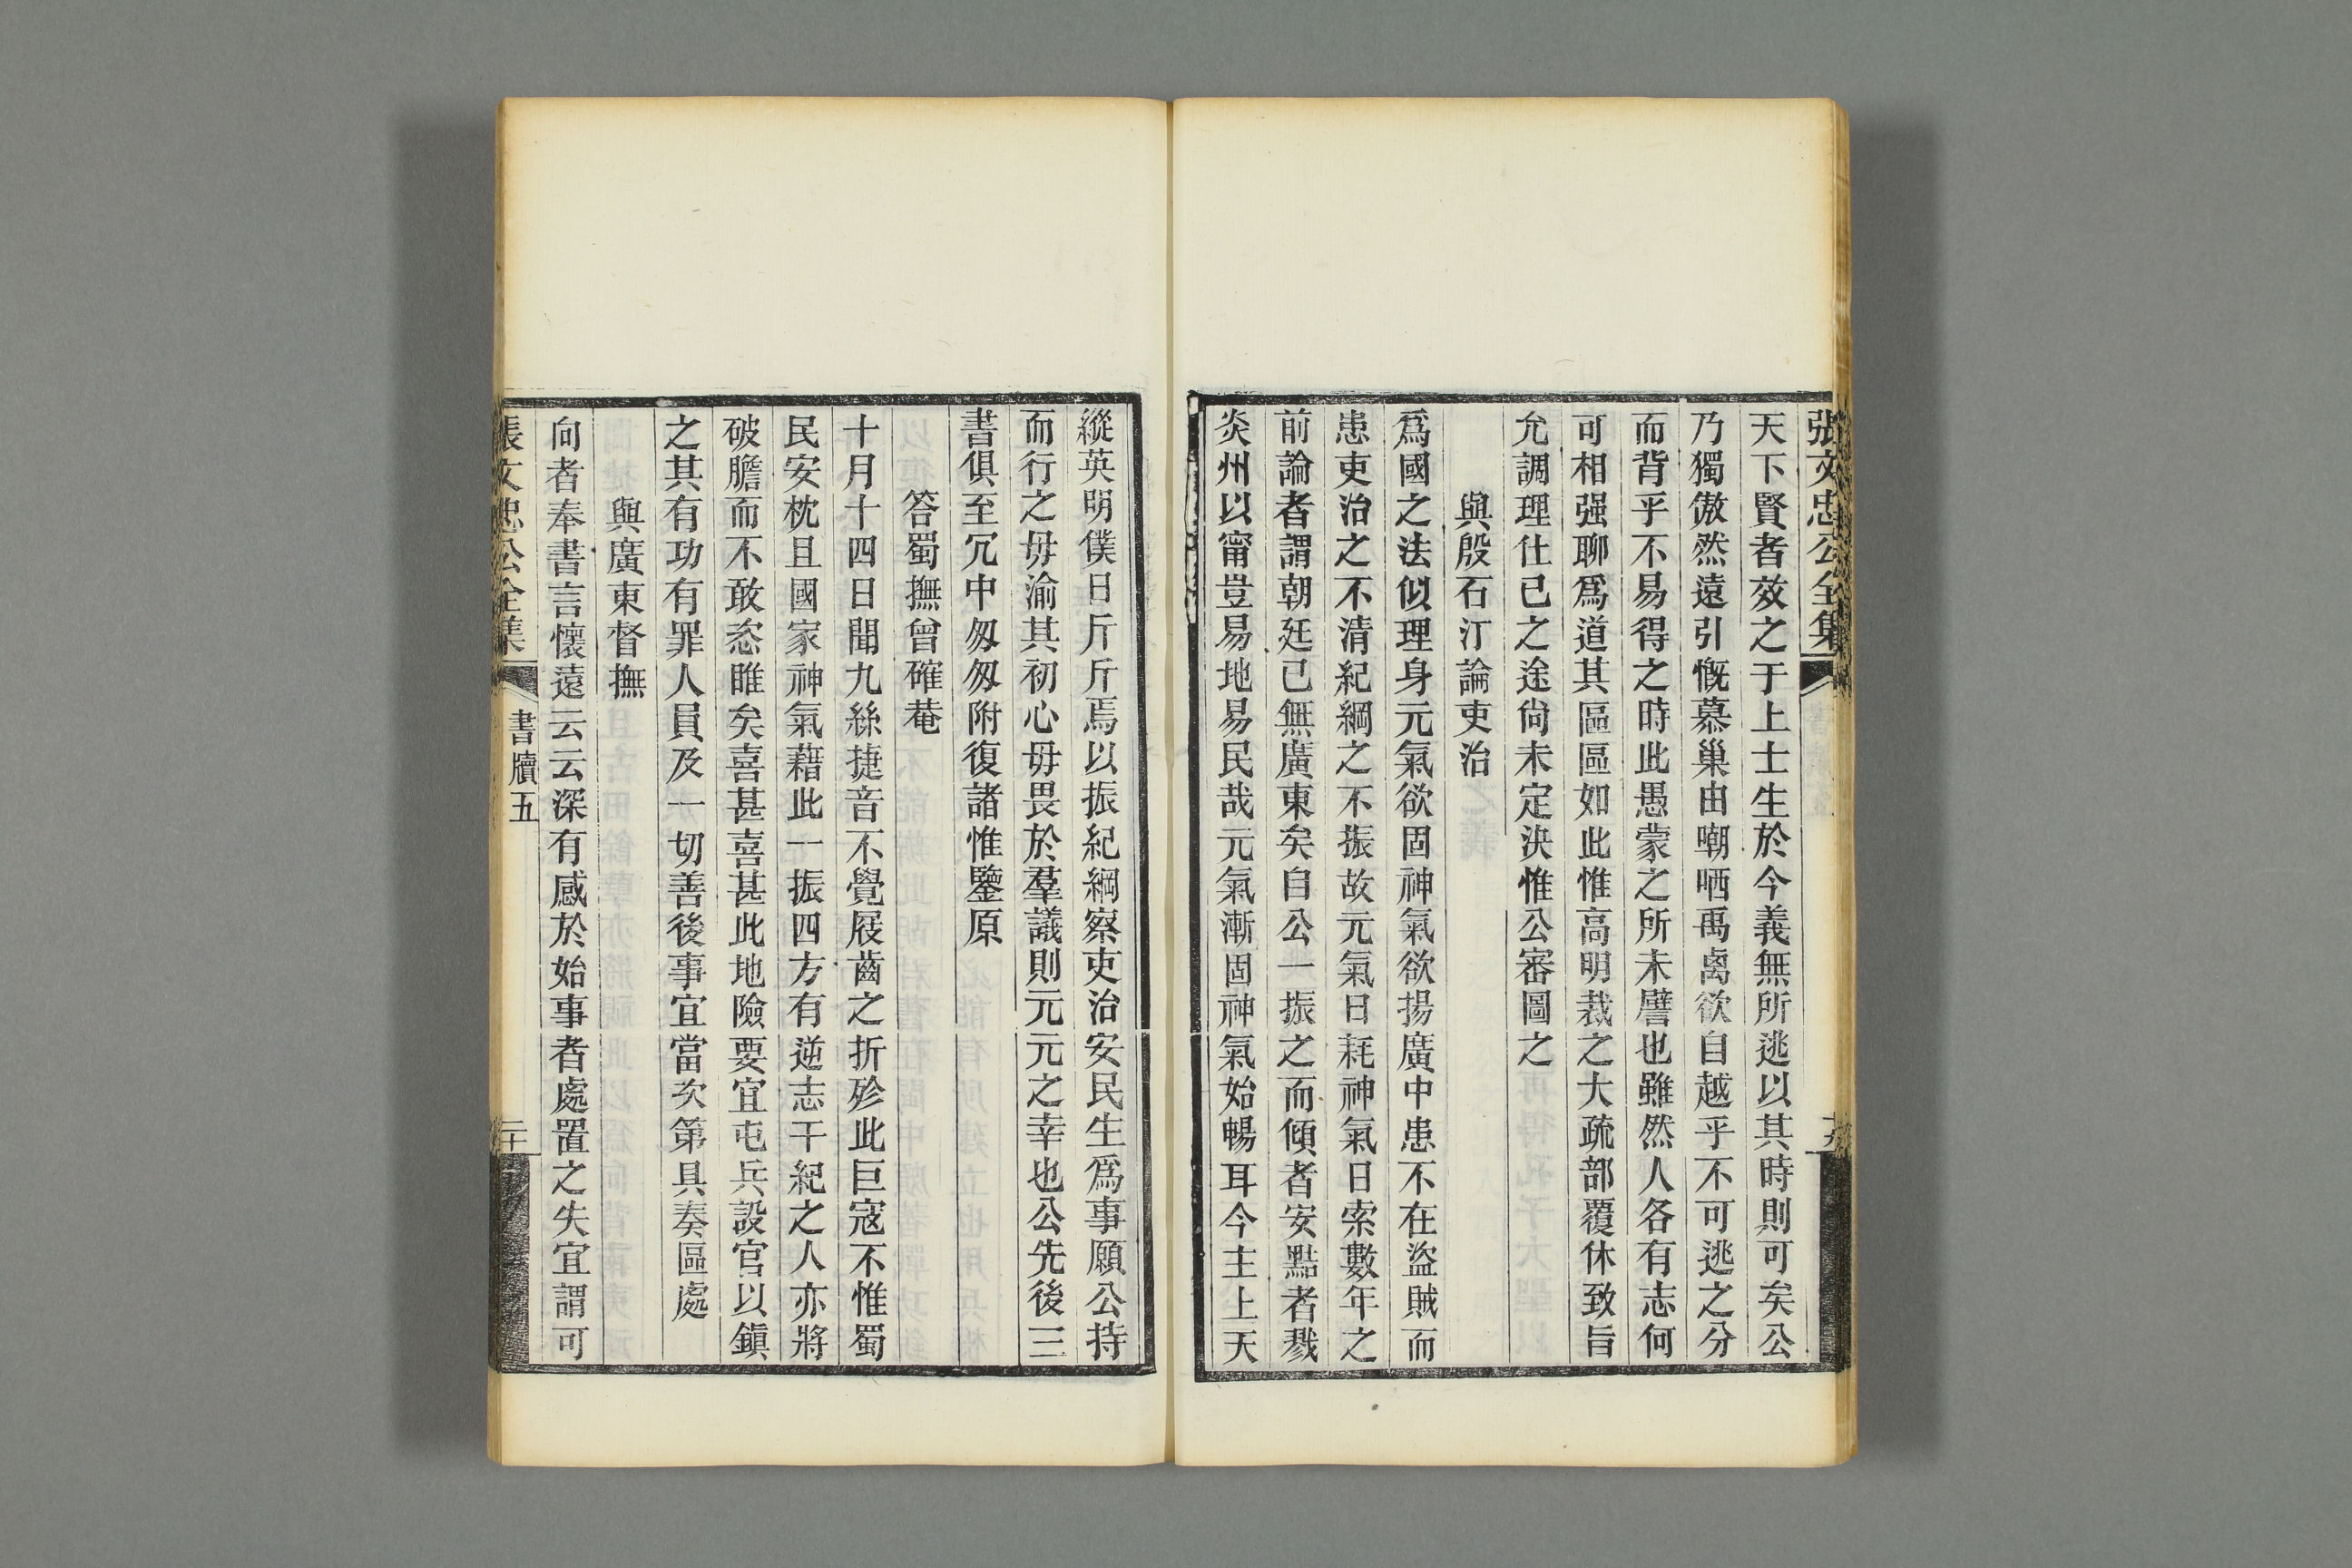 張文忠公全集
天下賢者效之于上士生於今義無所逃以其時則可矣公
乃獨傲然遠引慨慕巢由嘲哂禹卨欲自越乎不可逃之分
而背乎不易得之時此愚蒙之所未譍也雖然人各有志何
可相强聊爲道其區區如此惟高明裁之大疏部覆休致旨
允調理仕已之途尙未定決惟公審圖之
與殷石汀論吏治
爲國之法似理身元氣欲固神氣欲揚廣中患不在盜賊而
患吏治之不清紀綱之不振故元氣日耗神氣日索數年之
前論者謂朝廷已無廣東矣自公一振之而傾者安黠者戮
炎州以甯豈易地易民哉元氣漸固神氣始暢耳今主上天
縱英明僕日斤斤焉以振紀綱察吏治安民生爲事願公持
而行之毋渝其初心毋畏於羣議則元元之幸也公先後三
書俱至冗中匆匆附復諸惟鑒原
答蜀撫曾確菴
十月十四日聞九絲捷音不覺屐齒之折殄此巨寇不惟蜀
民安枕且國家神氣藉此一振四方有逆志干紀之人亦將
破膽而不敢恣睢矣喜甚喜甚此地險要宜屯兵設官以鎭
之其有功有罪人員及一切善後事宜當次第具奏區處
與廣東督撫
向者奉書言懷遠云云深有感於始事者處置之失宜謂可
張文忠公全集
書牘五
二十